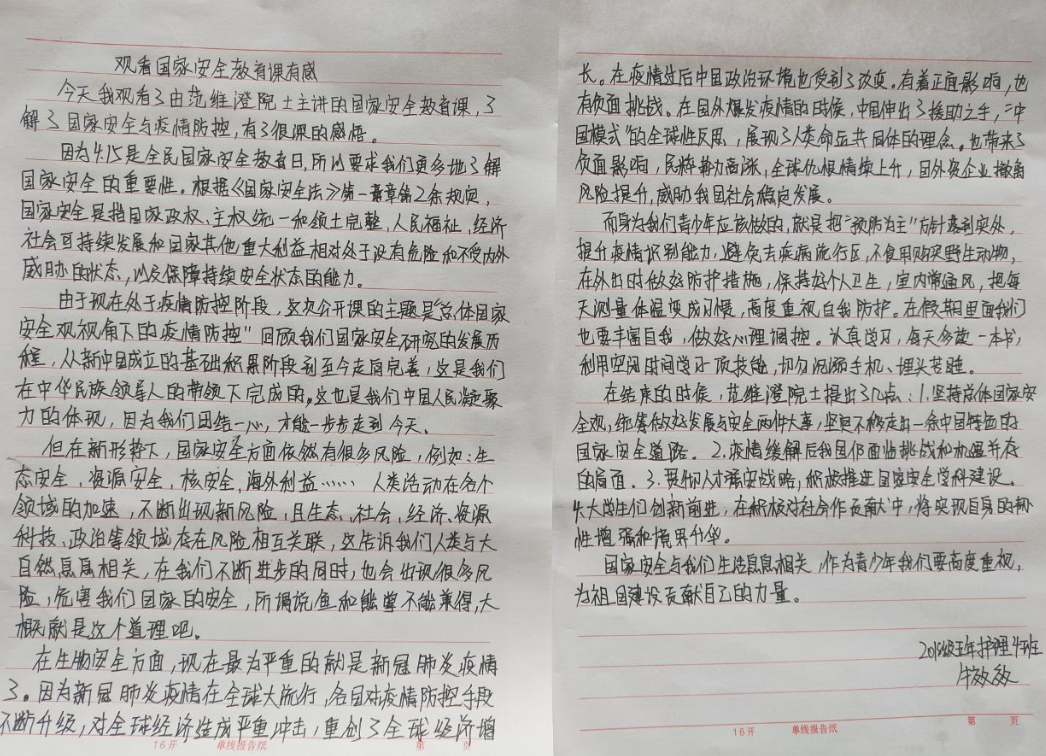 观看国家安全教育课有感
今天我观看了由范维澄院士主讲的国家安全教育课,了
解了国家安全与疫情防控,有了很深的感悟。
因为4.15是全民国家安全教育日,所以要求我们更多地了解
国家安全的重要性。根据《国家安全法》第一章第2条规定,
国家安全是指国家政权、主权统一和领土完整,人民福祉,经济
社会可持续发展和国家其他重大利益相对处于没有危险和不受内外
威胁的状态,以及保障持续安全状态的能力。
由于现在处于疫情防控阶段,这次公开课的主题是"总体国家
安全观视角下的疫情防控"回顾我们国家安全研究的发展历
程,从新中国成立的基础积累阶段到至今走向完善,这是我们
在中华民族领导人的带领下完成的,这也是我们中国人民凝聚
力的体现,因为我们团结一心,才能一步步走到今天、
但在新形势下,国家安全方面依然有很多风险,例如:生
态安全,资源安全,核安全,海外利益…… 人类活动在各个
领域的加速,不断出现新风险,且生态、社会、经济、资源
科技、政治等领域存在风险相互关联,这告诉我们人类与大
自然息息相关,在我们不断进步的同时,也会出现很多风
险,危害我们国家的安全,所谓说鱼和熊掌不能兼得,大
概就是这个道理吧。
在生物安全方面,现在最为严重的就是新冠肺炎疫情
了。因为新冠肺炎疫情在全球大流行,各国对疫情防控手段
不断升级,对全球经济造成严重冲击,重创了全球经济增
16开 单线报告纸 第 页
长。在疫情过后中国政治环境也受到了改变。有着正面影响,也
有负面挑战。在国外爆发疫情的时候,中国伸出了援助之手,"中
国模式"的全球性反思,展现了人类命运共同体的理念。也带来了
负面影响,民粹势力高涨,全球仇恨情绪上升,国外资企业撤离
风险提升,威胁我国社会稳定发展。
而身为我们青少年应该做的,就是把"预防为主"方针落到实处,
提升疫情识别能力,避免去疾病流行区,不食用购买野生动物,
在外出时做好防护措施,保持好个人卫生,室内常通风,把每
天测量体温变成习惯,高度重视自我防护。在假期里面我们
也要丰富自我,做好心理调控。认真学习,每天多读一本书,
利用空闲时间学习一项技能,切勿沉溺手机、埋头苦睡。
在结束的时候,范维澄院士提出了几点:1.坚持总体国家安
全观,统筹做好发展与安全两件大事,坚定不移走出一条中国特色的
国家安全道路。2.疫情缓解后我国仍面临挑战和机遇并存
的局面。3.要有人才强安战略,积极推进国家安全学科建设。
4.大学生们创新前进,在积极对社会作贡献中,将实现自身的韧
性增强和境界升华。
国家安全与我们生活息息相关,作为青少年我们要高度重视,
为祖国建设贡献自己的力量。
2018级五年护理4班
牛敏敏
16开 单线报告纸 第 页